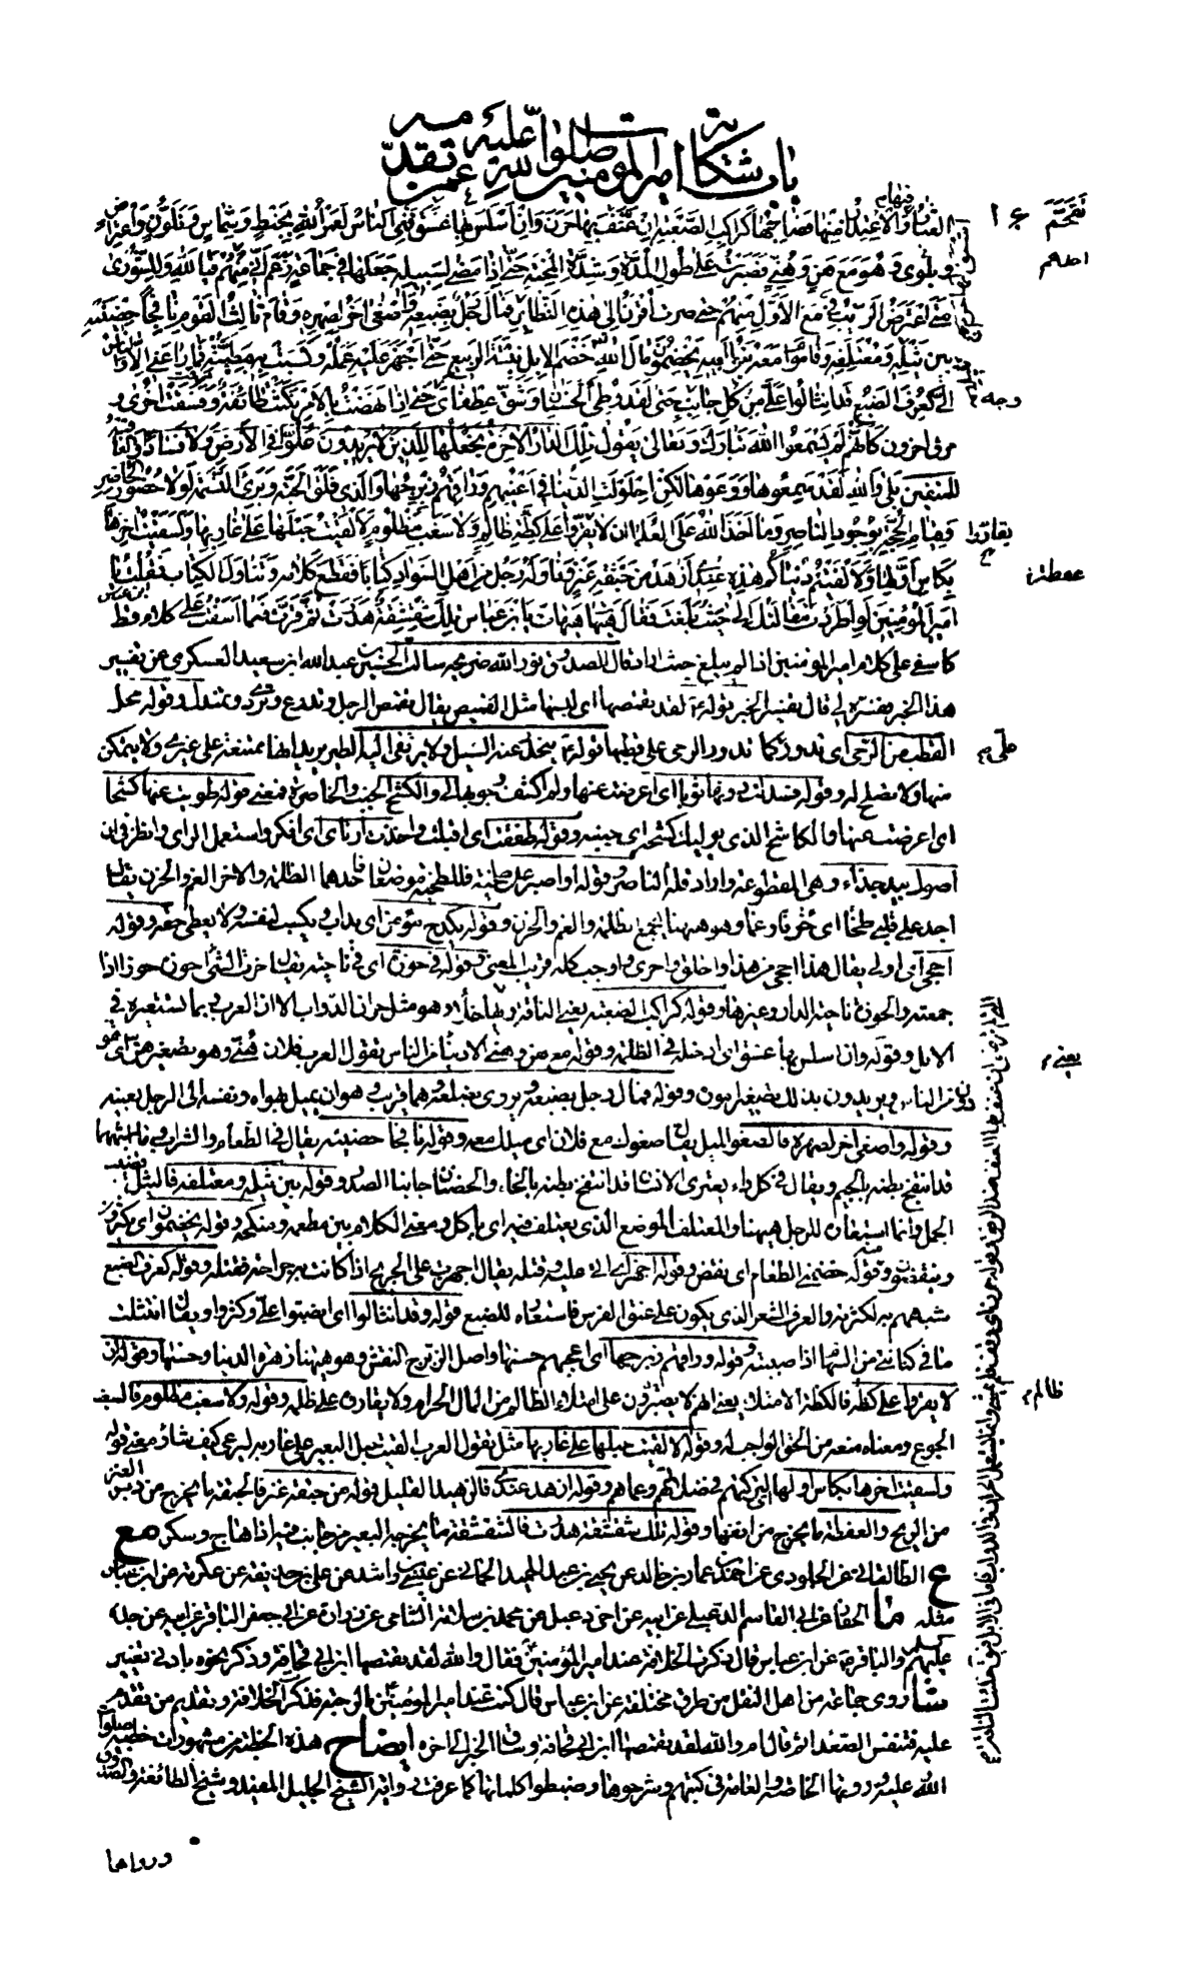 باب شكاية امير المؤمنين صلوات الله عليه عمن تقدمه
العثار والاعتذار منها فصاحبها كراكب الصعبة ان عنف بها حرن وان اسلس بها غسق فمني الناس لعمر الله بخبط وشماس وتلون واعتراض
وبلوى وهو مع هن وهني فصبرت على طول المدة وشدة المحنة حتى اذا مضى لسبيله جعلها في جماعة زعم اني منهم فيا لله وللشورى
متى اعترض الريب في مع الاول منهم حتى صرت اقرن الى هذه النظاير فمال رجل بضبعه واصغى اخر لصهره وقام ثالث القوم نافجا حضنيه
بين نثيله ومعتلفه وقاموا معه بنو ابيه يخضمون مال الله خضم الابل نبتة الربيع حتى اجهز عليه عمله وكسبت به مطيته فما راعني الا والناس
الي كعرف الضبع قد انثالوا علي من كل جانب حتى لقد وطئ الحسنان وشق عطفاي حتى اذا نهضت بالامر نكثت طائفة وفسقت اخرى و
مرق اخرون كانهم لم يسمعوا الله تبارك وتعالى يقول تلك الدار الاخرة نجعلها للذين لا يريدون علوا في الارض ولا فسادا والعاقبة
للمتقين بلى والله لقد سمعوها ووعوها لكن احلولت الدنيا في اعينهم وراقهم زبرجها والذي فلق الحبة وبرئ النسمة لولا حضور الحاضر
وقيام الحجة بوجود الناصر وما اخذ الله على العلماء ان لا يقروا على كظة ظالم ولا سغب مظلوم لالقيت حبلها على غاربها ولسقيت اخرها
بكاس اولها ولالفيتم دنياكم هذه عندي ازهد من حبقة عنز وناوله رجل من اهل السواد كتابا فقطع كلامه وتناول الكتاب فقلت يا
امير المؤمنين لو اطردت مقالتك الى حيث بلغت فقال هيهات هيهات يا ابن عباس تلك شقشقة هدرت ثم قرت فما اسفت على كلام قط
كاسفي على كلام امير المؤمنين اذ لم يبلغ حيث اراد قال الصدوق نور الله ضريحه سالت الحسن بن عبد الله ابن سعيد العسكري عن تفسير
هذا الخبر ففسره لي قال تفسير الخبر قوله لقد تقمصها اي لبسها مثل القميص يقال تقمص الرجل وتدرع وتردى وتمندل وقوله محل
القطب من الرحى اي تدور كما تدور الرحى على قطبها قوله ينحدر عنه السيل ولا يرتقي اليه الطير يريد انها ممتنعة على غيري ولا يتمكن
منها ولا يصلح له وقوله فسدلت دونها ثوبا اي اعرضت عنها ولم اكشف وجوبها لي والكشح الجنب والخاصرة فمعنى قوله طويت عنها كشحا
اي اعرضت عنها والكاشح الذي يوليك كشحه اي جنبه وقوله طفقت اي اقبلت واخذت ارتأي اي افكر واستعمل الراي وانظر في ان
اصول بيد جذاء وهي المقطوعة واراد قلة الناصر وقوله او اصبر على طخية فللطخية موضعان فاحدهما الظلمة والاخر الغم والحزن يقال
اجد على قلبي طخيا اي حزنا وغما وهو ههنا يجمع الظلمة والغم والحزن وقوله يكدح مؤمن اي يداب ويكسب لنفسه ولا يعطى حقه وقوله
احجى اي اولى يقال هذا احجى من هذا واخلق واحرى واوجب كله قريب المعنى وقوله في حوزة اي في ناحية يقال حزت الشي احوزه حوزا اذا
جمعته والحوزة ناحية الدار وغيرها وقوله كراكب الصعبة يعني الناقة
الابل وقوله وان اسلس بها غسق اي ادخله في الظلمة وقوله مع هن وهني يعني الادنياء من الناس تقول العرب فلان هني وهو تصغير هن اي هو
دون من الناس ويريدون بذلك تصغير امره وقوله فمال رجل بضبعه ويروى بضلعه وهما قريب وهو ان يميل بهواه ونفسه الى الرجل بعينه
وقوله واصغى اخر لصهره فالصغو الميل يقال صغوك مع فلان اي ميلك معه وقوله نافجا حضنيه يقال في الطعام والشراب وما اشبههما
قد انتفج بطنه بالجيم ويقال في كل داء يعتري الانسان قد انتفخ بطنه بالخاء والحضنان جانبا الصدر وقوله بين نثيله ومعتلفه فالنثيل قضيب
الجمل وانما استعاره للرجل ههنا والمعتلف الموضع الذي يعتلف فيه اي ياكل ومعنى الكلام بين مطعمه ومنكحه وقوله يخضمون اي يكثرون
وينقضون ومنه قوله خضمني الطعام اي نقض وقوله اجهز اي اتى عليه وقتله يقال اجهزت على الجريح اذا كانت به جراحة فقتلته وقوله كعرف الضبع
شبههم به لكثرته والعرف الشعر الذي يكون على عنق الفرس فاستعاره للضبع قوله وقد انثالوا اي انصبوا علي وكثروا ويقال انتثلت
ما في كنانتي من السهام اذا صببته وقوله وراقهم زبرجها اي اعجبهم حسنها واصل الزبرج النقش وهو ههنا زهرة الدنيا وحسنها وقوله ان
لا يقروا على كظة فالكظة الامتلاء يعني انهم لا يصبرون على امتلاء الظالم من المال الحرام ولا يقاروا على ظلمه وقوله ولا سغب مظلوم فالسغب
الجوع ومعناه منعه من الحق الواجب له وقوله لالقيت حبلها على غاربها مثل تقول العرب القيت حبل البعير على غاربه ليرعى كيف شاء ومعنى قوله
ولسقيت اخرها بكاس اولها اي لتركتهم في ضلالتهم وعماهم وقوله ازهد عندي فالزهيد القليل قوله من حبقة عنز فالحبقة ما يخرج من دبر العنز
من الريح والعفطة ما يخرج من انفها وقوله تلك شقشقة هدرت فالشقشقة ما يخرجه البعير من جانب فيه اذا هاج وسكر مع
ع الطالقاني عن الجلودي عن احمد بن عمار بن خالد عن يحيى بن عبد الحميد الحماني عن عيسى بن راشد عن علي بن حذيفة عن عكرمة عن ابن عباس
مثله ما الحفار عن ابي القاسم الدعبلي عن ابيه عن اخي دعبل عن محمد بن سلامة الشامي عن زرارة عن ابي جعفر الباقر عن ابيه عن جده
عليهم السلام والباقر عن ابن عباس قال ذكرت الخلافة عند امير المؤمنين فقال والله لقد تقمصها ابن ابي قحافة وذكر نحوه بادنى تغيير
شا روى جماعة من اهل النقل من طرق مختلفة عن ابن عباس قال كنت عند امير المؤمنين بالرحبة فذكرت الخلافة وتقديم من تقدم
عليه فتنفس الصعداء ثم قال ام والله لقد تقمصها ابن ابي قحافة وساق الخبر الى اخره ايضاح هذه الخطبة من مشهورات خطبه صلوات
الله عليه روتها الخاصة والعامة في كتبهم وشرحوها وضبطوا كلماتها كما عرفت رواية الشيخ الجليل المفيد وشيخ الطائفة والصدوق
ورواها
تقحم
احدهم
وجه
يقاروا
عفطة
على
يعني
ظالم